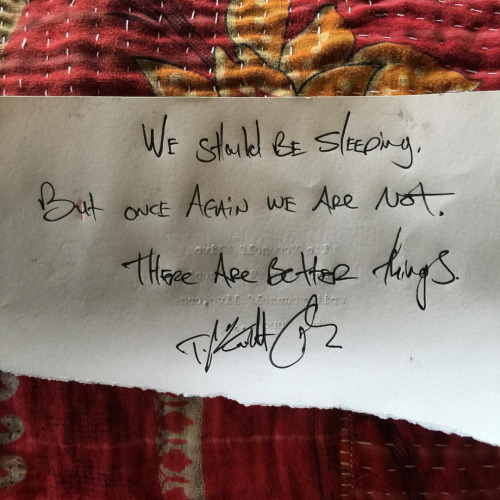 We should be sleeping.
But once again we are not.
There are better things.